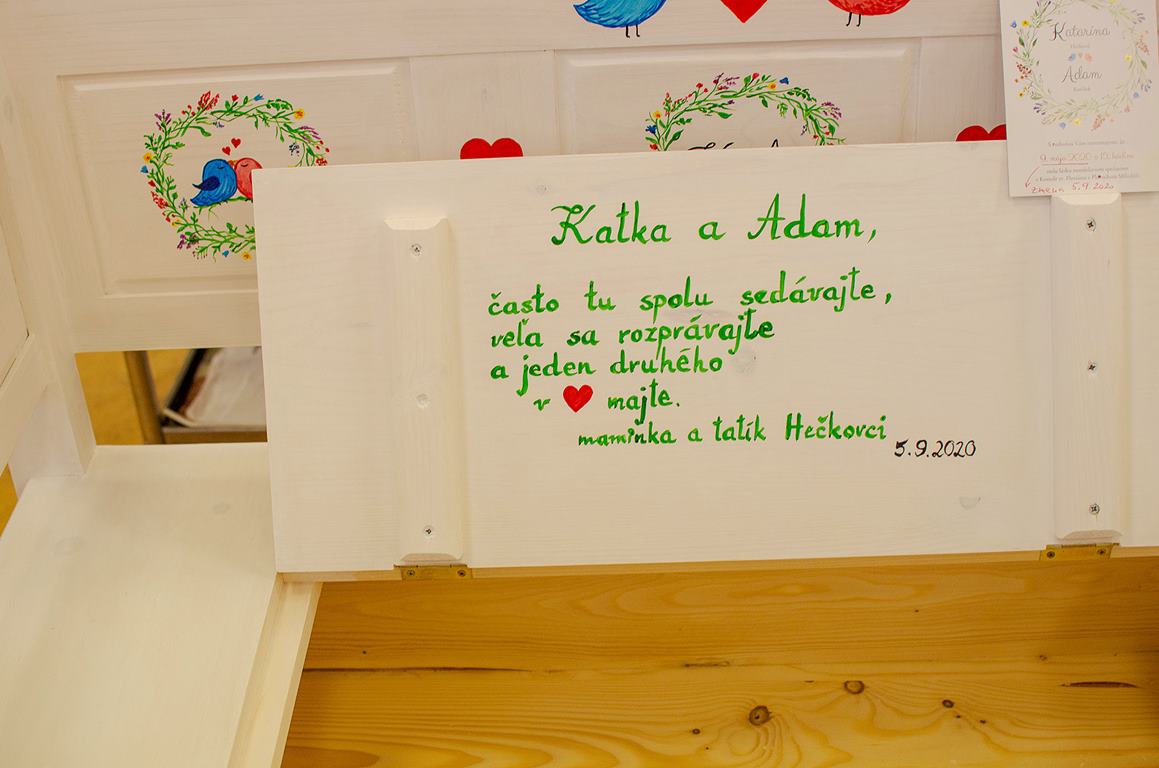 Katka a Adam,
často tu spolu sedávajte,
veľa sa rozprávajte
a jeden druhého
v majte.
maminka a tatík Hečkovci
5.9.2020
Katarína
Hečková
Adam
9. mája 2020 o 15. hodine
zmena 5.9.2020